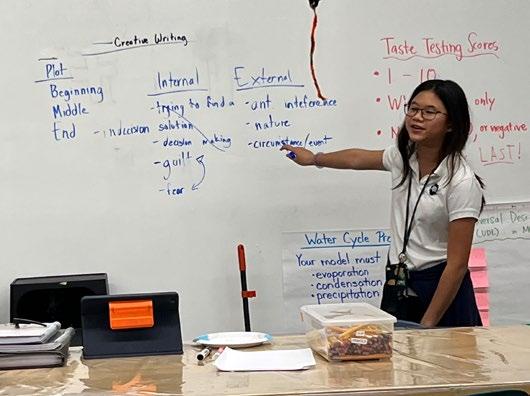 Creative Writing
Plot
Beginning
Middle
End - indecision
Internal
- trying to find a
solution
- decision making
- guilt
- fear
External
- ant inteference
- nature
- circumstance/event
Taste Testing Scores
• 1 - 10
only
or negative
LAST!
Water Cycle Pr
Your model must
• evaporation
• condensation
• precipitation
(UDL)